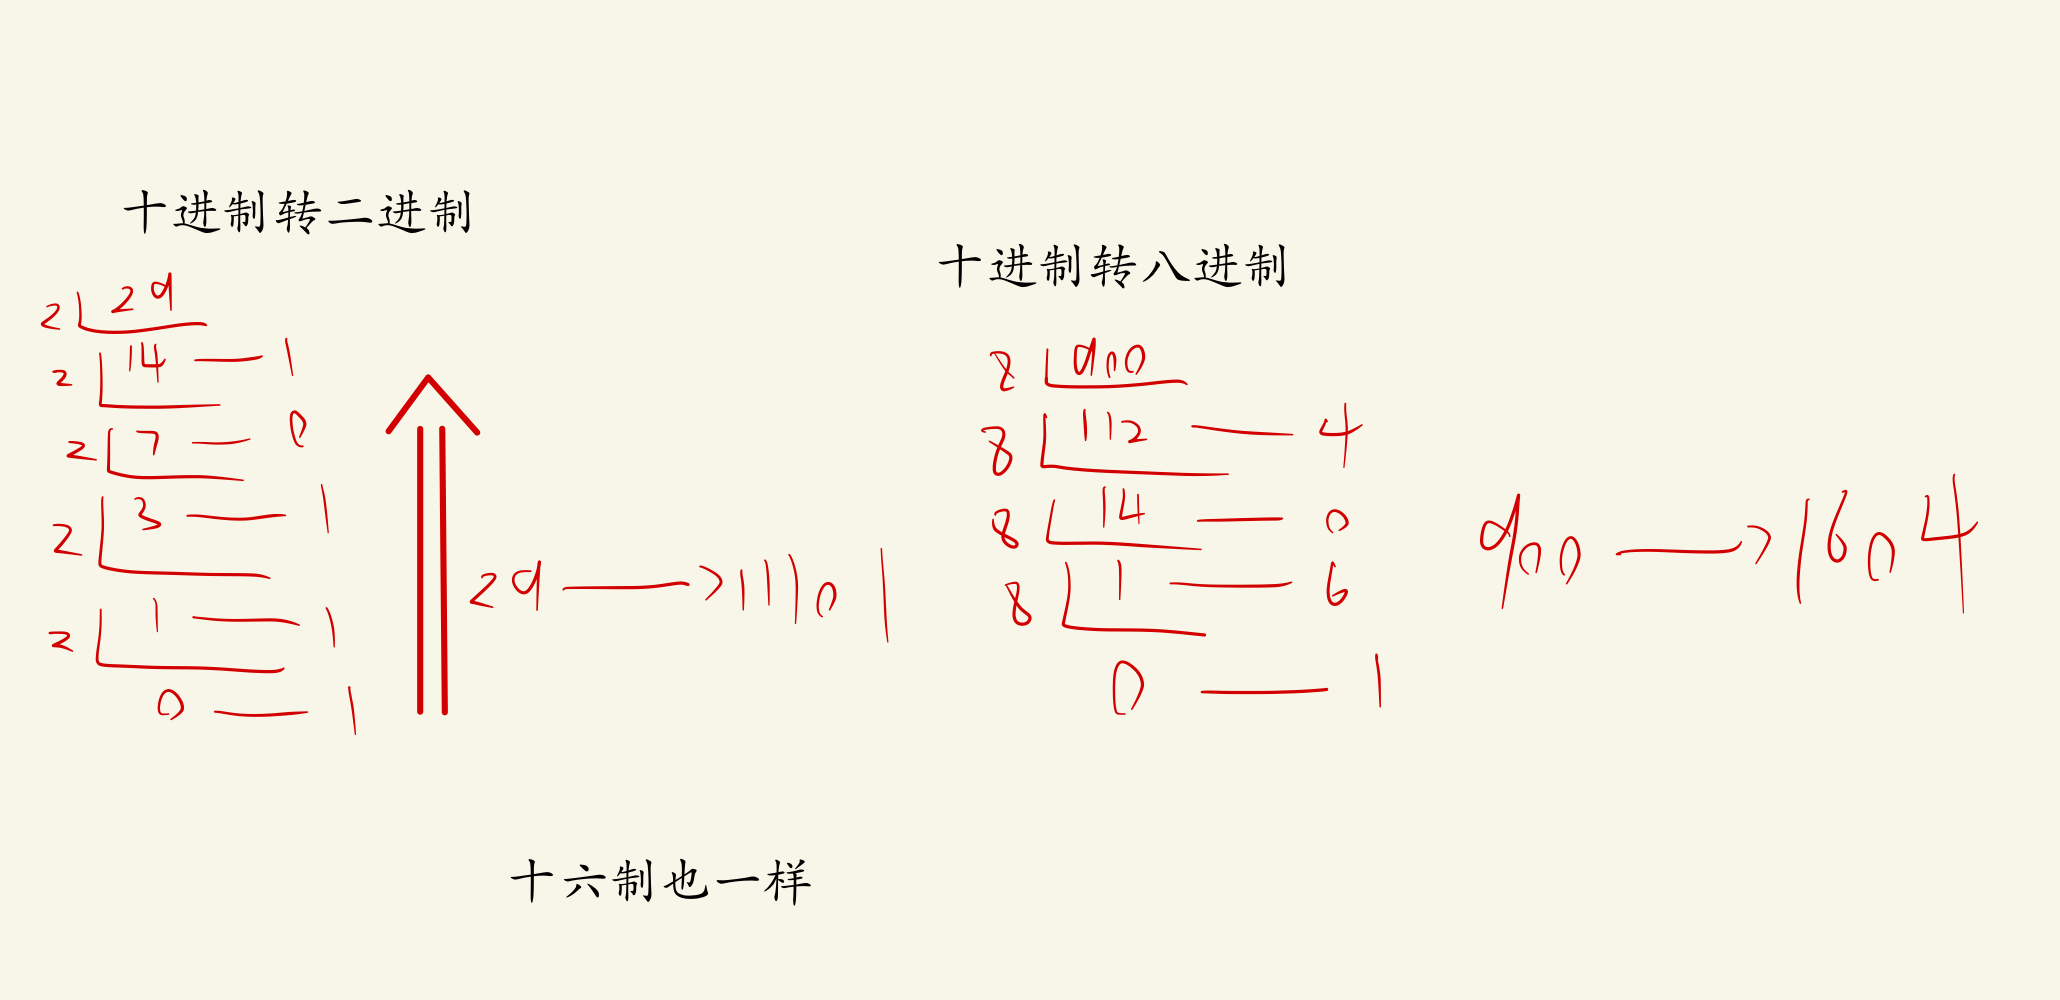 十进制转二进制
2 29
2 14 — 1
2 7 — 0
2 3 — 1
2 1 — 1
0 — 1
29 → 11101
十进制转八进制
8 900
8 112 — 4
8 14 — 0
8 1 — 6
0 — 1
900 → 1604
十六制也一样